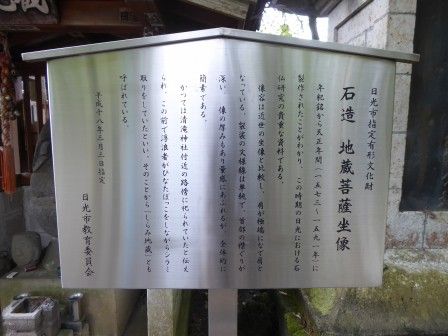 日光市指定有形文化財
石造 地蔵菩薩坐像
年紀銘から天正年間(一五七三〜一五九一年)に
製作されたことがわかり、この時期の日光における石
仏研究の貴重な資料である。
像容は近世の坐像と比較し、肩が極端になで肩と
なっている。袈裟の文様線は単純で、首部の襟ぐりが
深い。像の厚みもあり量感にあふれるが、全体的に
簡素である。
かつては清滝神社付近の路傍に祀られていたと伝え
られ、この前で浮浪者がひなたぼっこをしながらシラミ
取りをしていたといい、そのことから「しらみ地蔵」とも
呼ばれている。
平成十八年三月三日指定
日光市教育委員会